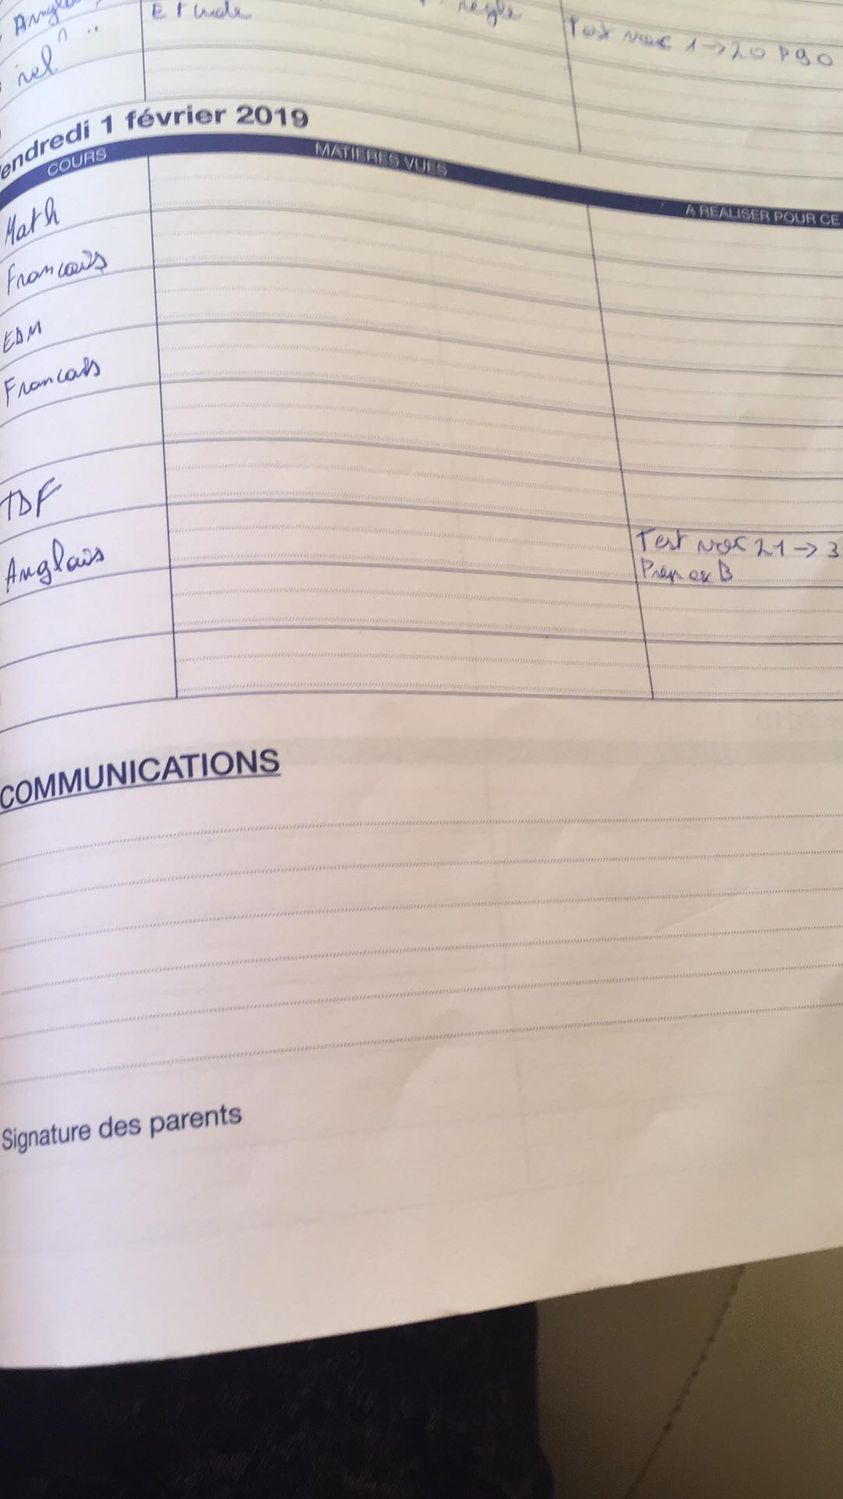 Etude
règle
Test voc 1→20 p90
Vendredi 1 février 2019
COURS
MATIÈRES VUES
À RÉALISER POUR CE
Math
Francais
EDM
Francais
TDF
Anglais
Test voc 21→3
Prep ex B
COMMUNICATIONS
Signature des parents